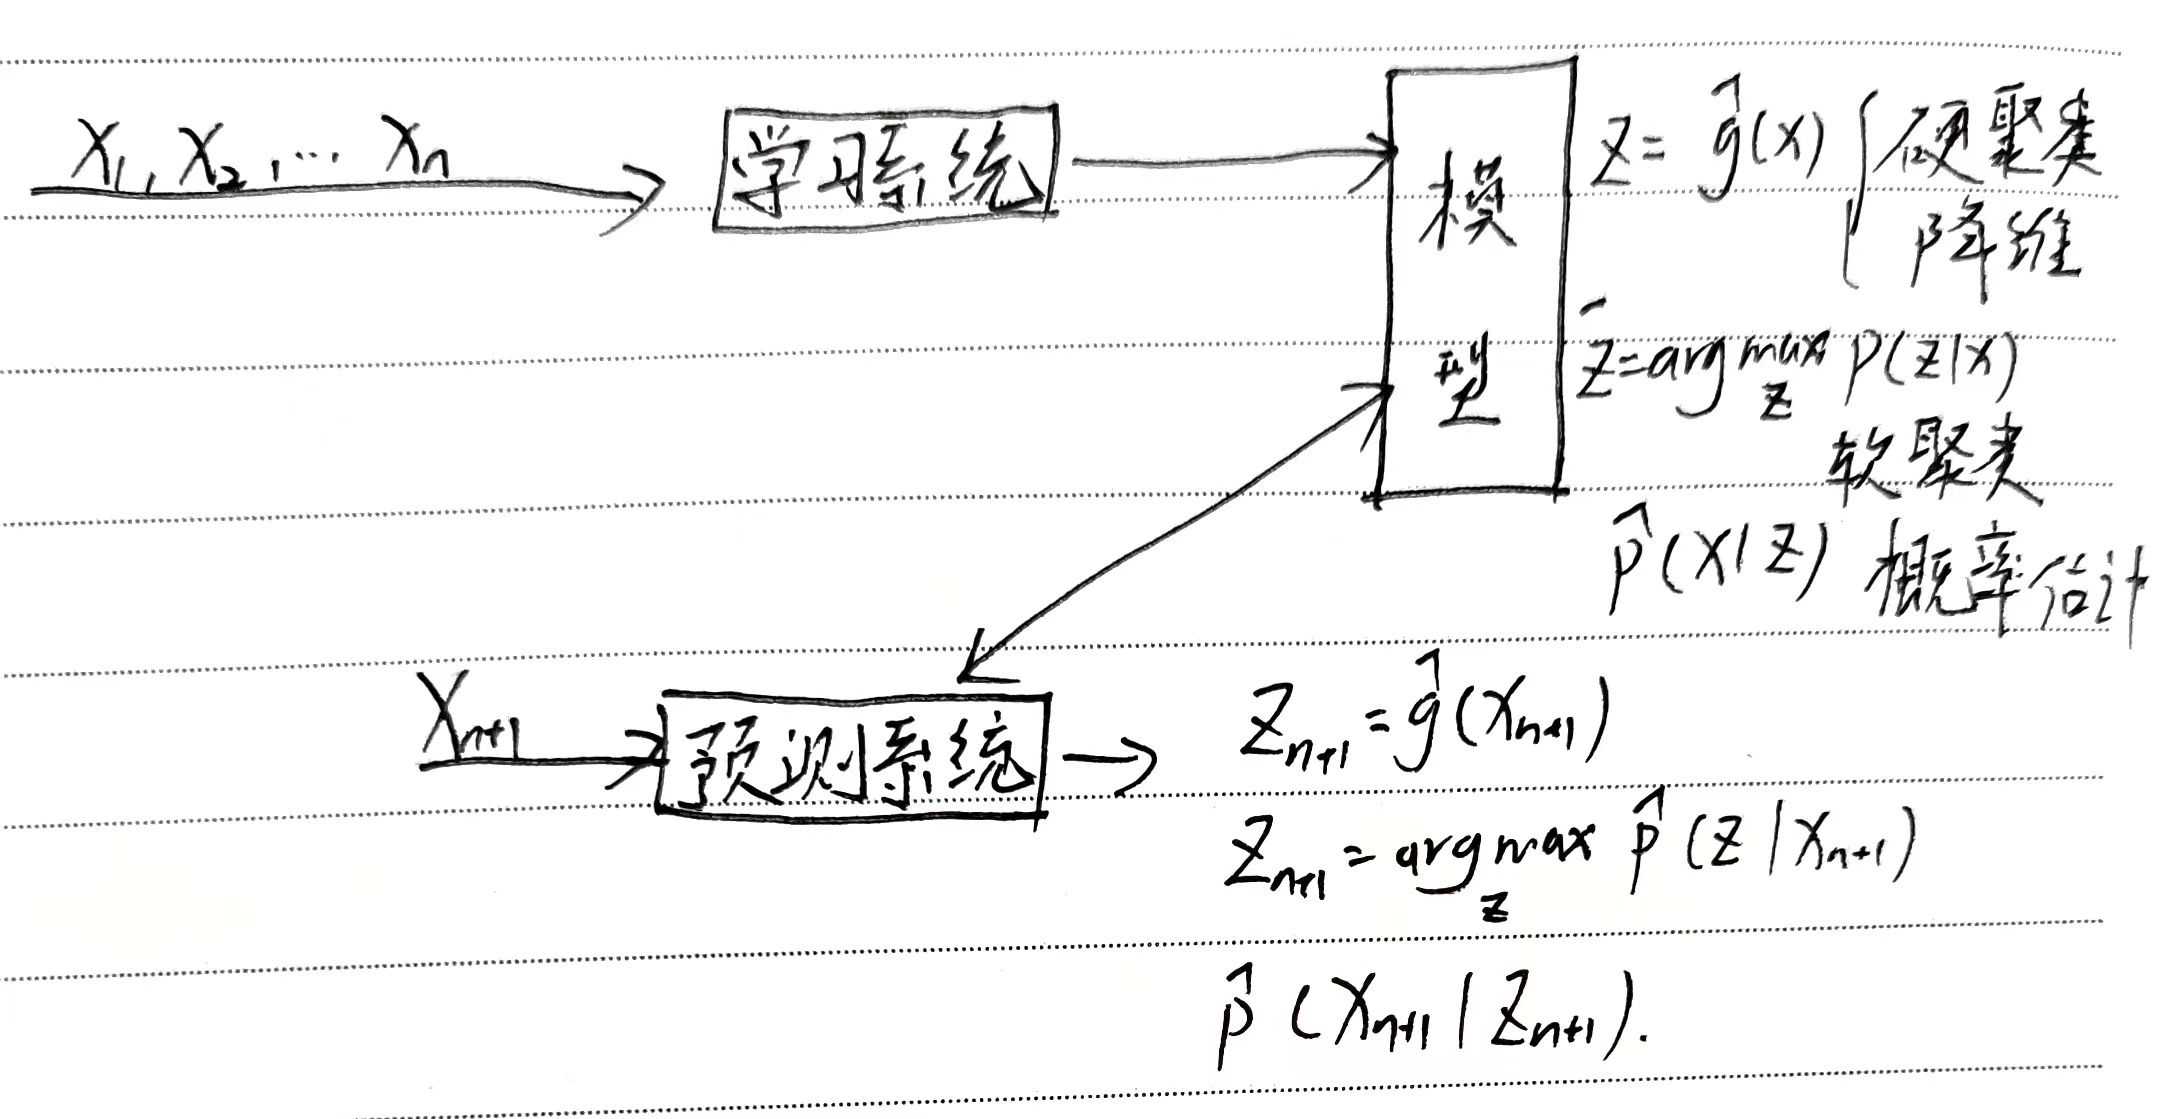 X₁, X₂, ... Xₙ
学习系统
模
型
Z = ĝ(x) { 硬聚类
降维
Ẑ = arg max P(Z|X)
Z
软聚类
p̂(X|Z) 概率估计
Xₙ₊₁
预测系统
Zₙ₊₁ = ĝ(Xₙ₊₁)
Zₙ₊₁ = arg max p̂(Z|Xₙ₊₁)
Z
p̂(Xₙ₊₁|Zₙ₊₁).